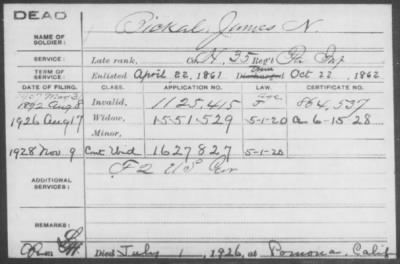 DEAD
NAME OF SOLDIER: Pickal, James N.
SERVICE: Late rank, Co. H, 35 Reg't Pa. Inf
TERM OF SERVICE: Enlisted April 22, 1861 Discharged Oct 22, 1862
DATE OF FILING. CLASS. APPLICATION NO. LAW. CERTIFICATE NO.
1892 Aug 8 Invalid, 1125,415 864,537
1926 Aug 17 Widow, 1551,529 5-1-20 6-15-28
Minor,
1928 Nov 9 Cont Und 1627827 5-1-20
ADDITIONAL SERVICES: F 2 US
REMARKS:
Died July 1, 1926, at Pomona, Calif